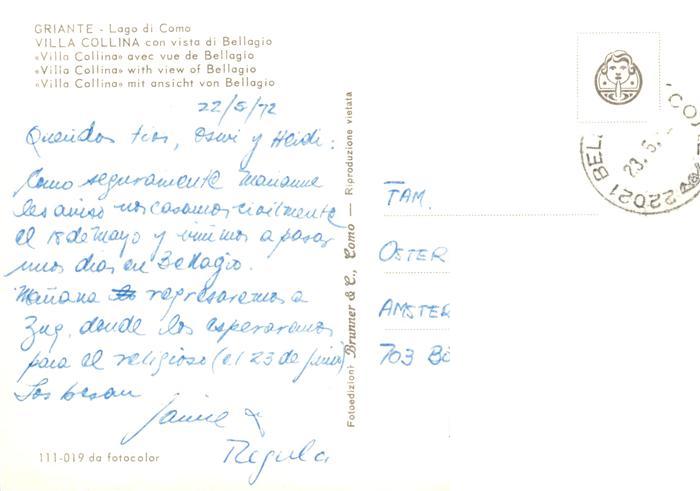 GRIANTE - Lago di Como
VILLA COLLINA con vista di Bellagio
«Villa Collina» avec vue de Bellagio
«Villa Collina» with view of Bellagio
«Villa Collina» mit ansicht von Bellagio
22/5/72
Queridos tios, Oswi y Heidi:
Como seguramente Marianne
les aviso nos casamos civilmente
el 18 de mayo y vinimos a pasar
unos dias en Bellagio.
Mañana regresaremos a
Zug, donde los esperaremos
para el religioso (el 23 de junio)
Los besan
Jaime &
Regula
111-019 da fotocolor
Fotoedizioni Brunner & C., Como — Riproduzione vietata
22021 BEL
23.5.
CO
FAM.
OSTER
AMSTER
703 BÖ